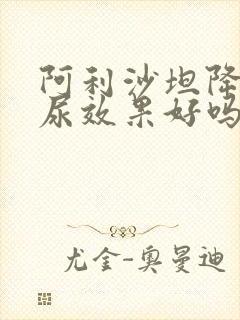 阿利沙坦降
尿效果好吗
尤金-奥曼迪